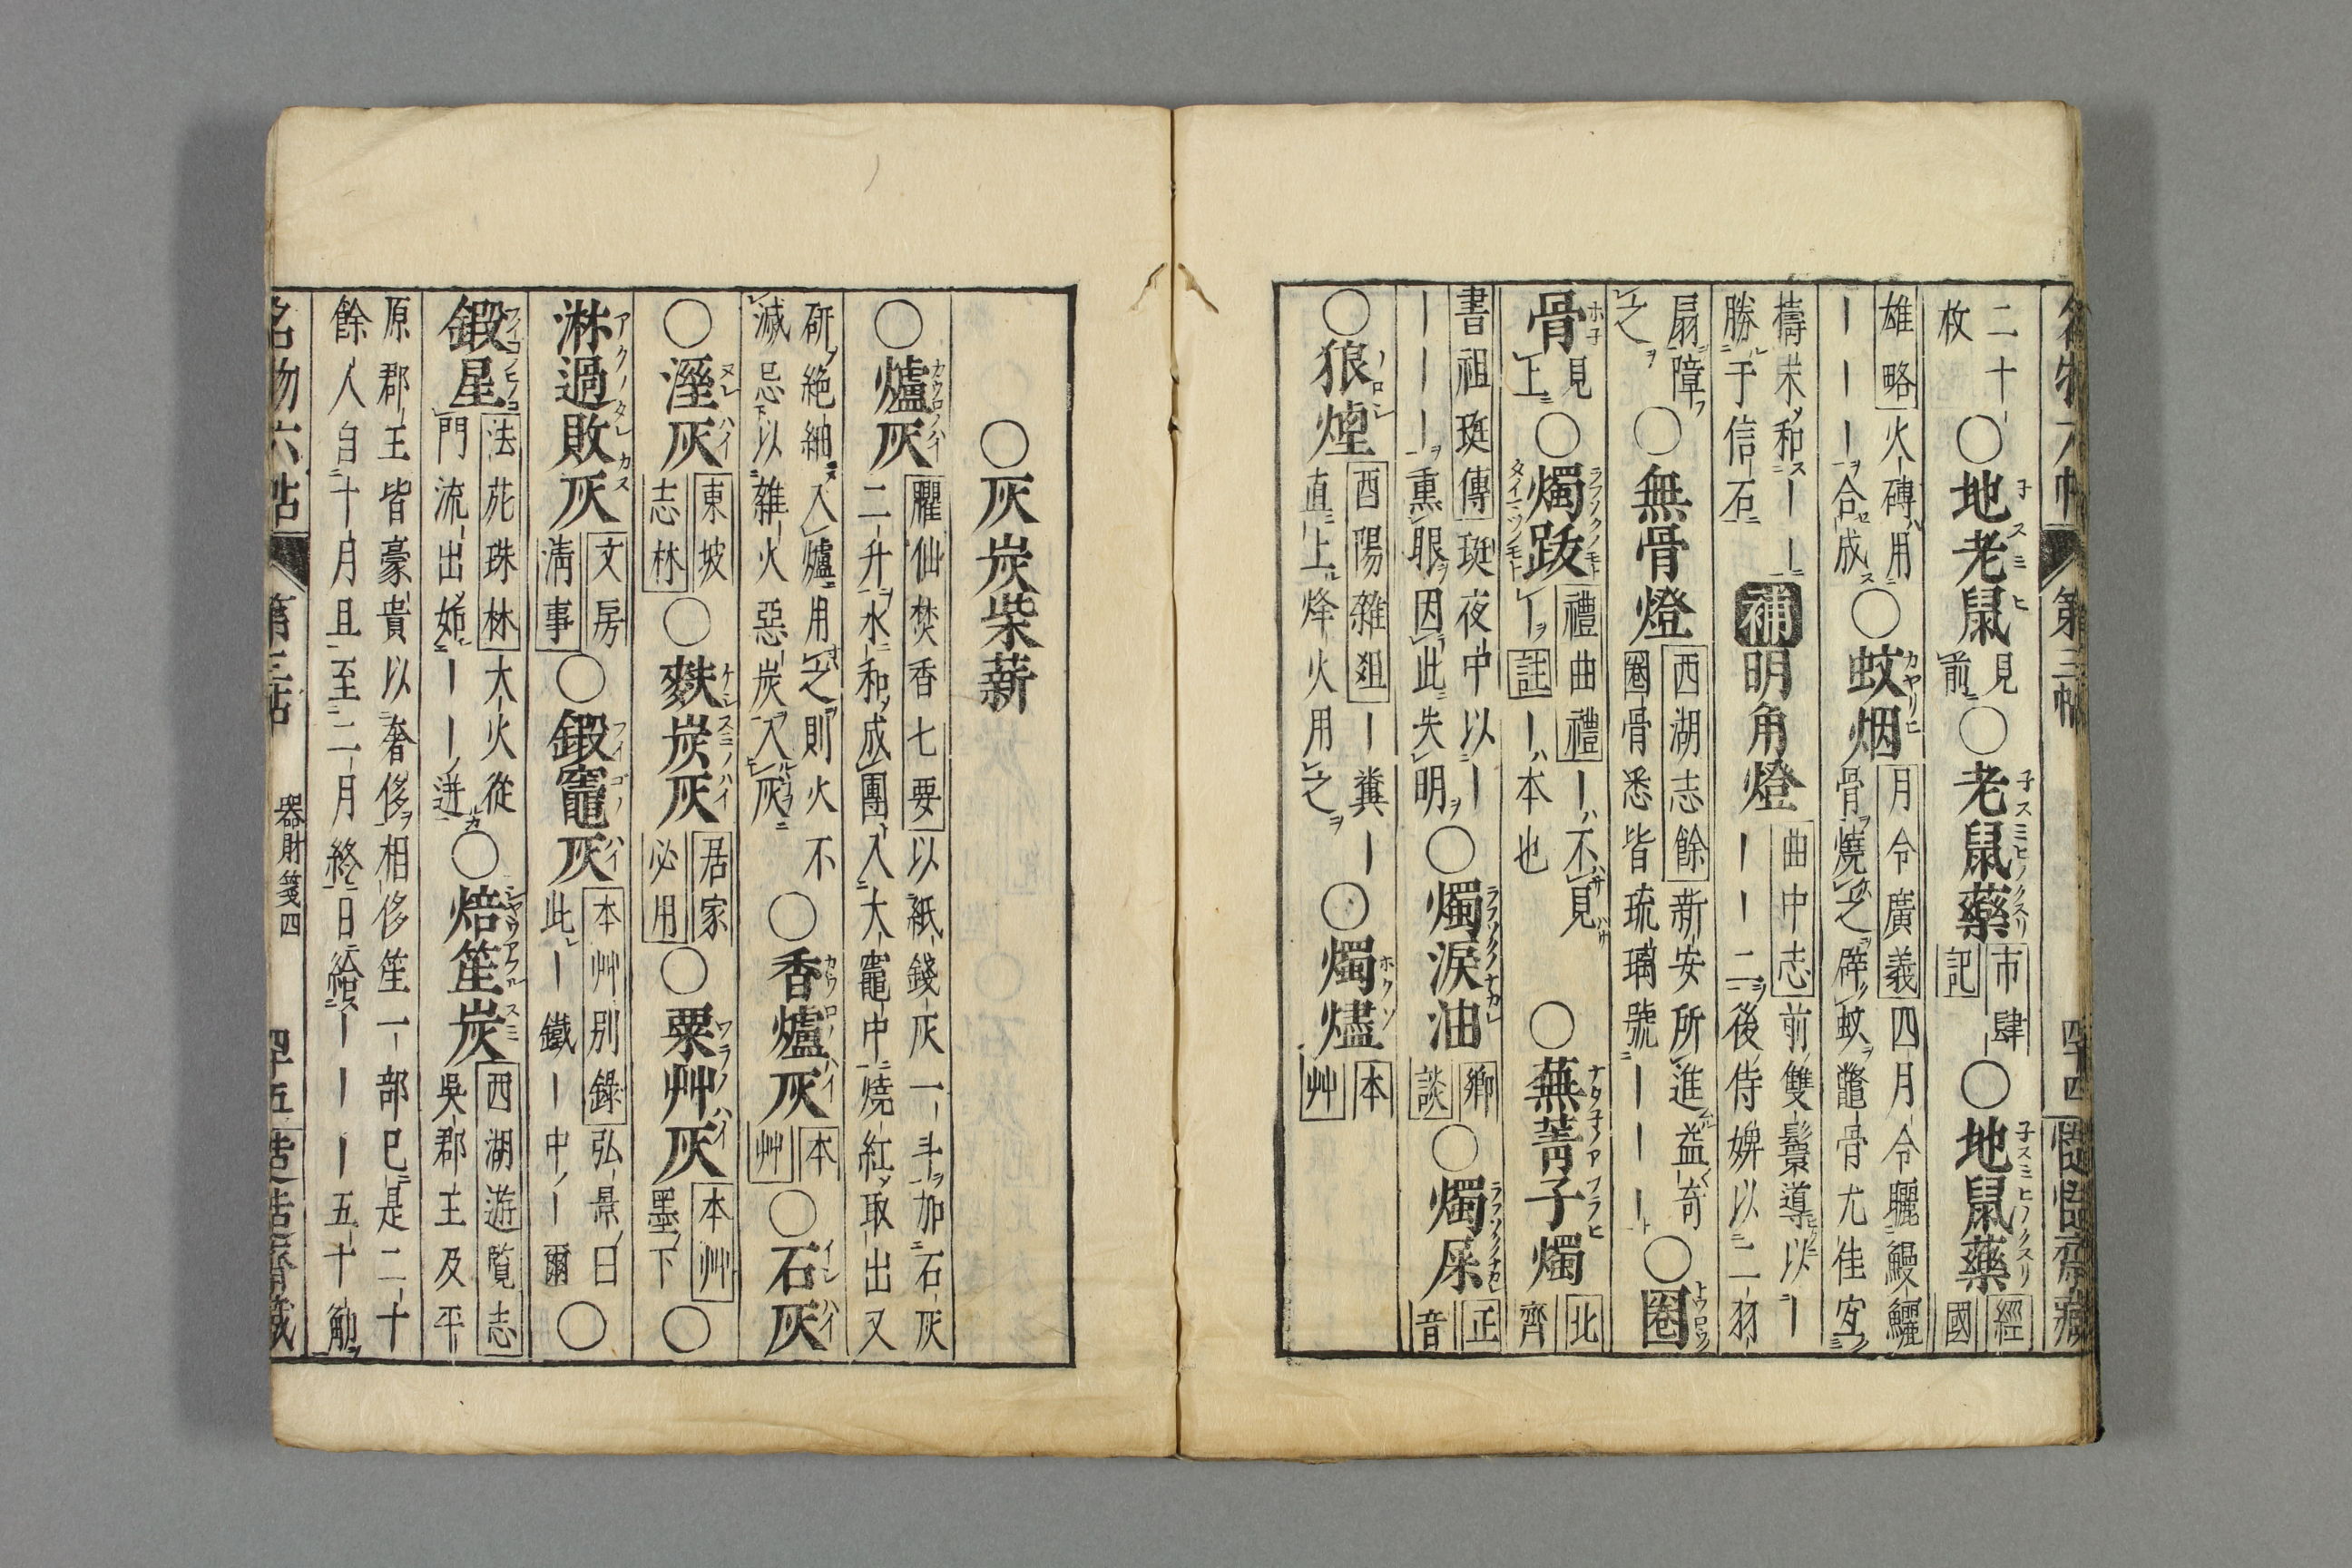 名物六帖 第三帖 四十四
二十
枚
○地老鼠 見
前 ○老鼠藥 市肆
記 ○地鼠藥 經
國
雄略 火磚用
ーーー合成 ○蚊烟 月令廣義 四月令驪鰻鱺
骨燒之辟蚊鼈骨尤佳
檮末和ーー
勝于信石 補 明角燈 曲中志 前雙鬟導以ー
ーー二後侍婢以二羽
扇障
之 ○無骨燈 西湖志餘 新安所進益奇
圈骨悉皆琉璃號ーーー ○圈
骨 見
上 ○燭跋 禮曲禮 ー不見
ー 註 ー本也 ○蕪菁子燭 北
齊
書祖珽傳 珽夜中以ー
ーーー熏眼因此失明 ○燭淚油 鄉
談 ○燭屎 正
音
○狼煙 酉陽雜俎 ー糞ー
直上烽火用之 ○燭燼 本
艸
○灰炭柴薪
○爐灰 臞仙焚香七要 以紙錢灰一斗加石灰
二升水和成團入大竈中燒紅取出又
研絕細入爐用之則火不
滅忌以雜火惡炭入灰 ○香爐灰 本
艸 ○石灰
○溼灰 東坡
志林 ○麩炭灰 居家
必用 ○粟艸灰 本艸
墨下 ○
淋過敗灰 文房
淸事 ○鍛竈灰 本艸別錄 弘景曰
此ー鐵ー中ー爾 ○
鍛星 法苑珠林 大火從
門流出如ーー迸 ○焙笙炭 西湖遊覧志
吳郡王及平
原郡王皆豪貴以奢侈相侈笙一部巳是二十
餘人自十月且至二月終日給ーーー五十觔
名物六帖 第三帖 器財箋四 四十五